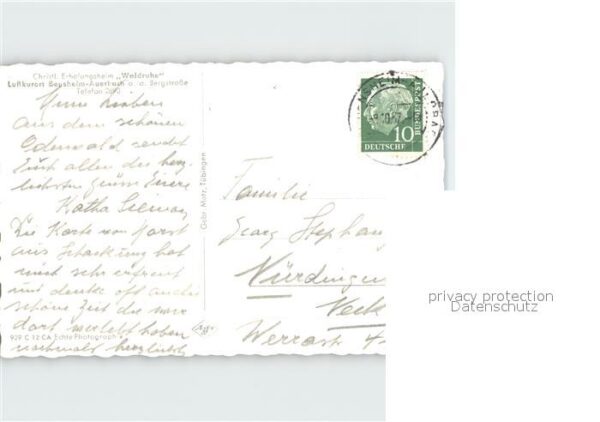 Christl. Erholungsheim „Waldruhe"
Luftkurort Bensheim-Auerbach a. d. Bergstraße
Telefon
Meine Lieben
Aus dem schönen
Odenwald sendet
Euch allen die herz-
lichsten Grüsse Eure
Katha
Die Karte von Horst
aus hat
mich sehr erfreut
und denke oft an die
schöne Zeit die wir
dort verlebt haben
nochmals herzlichst
929 C 12 CA Echte Photographie
Gebr. Metz, Tübingen
10
DEUTSCHE
BUNDESPOST
Familie
Georg Stephan
Nürdingen
Neck
Werrastr
privacy protection
Datenschutz